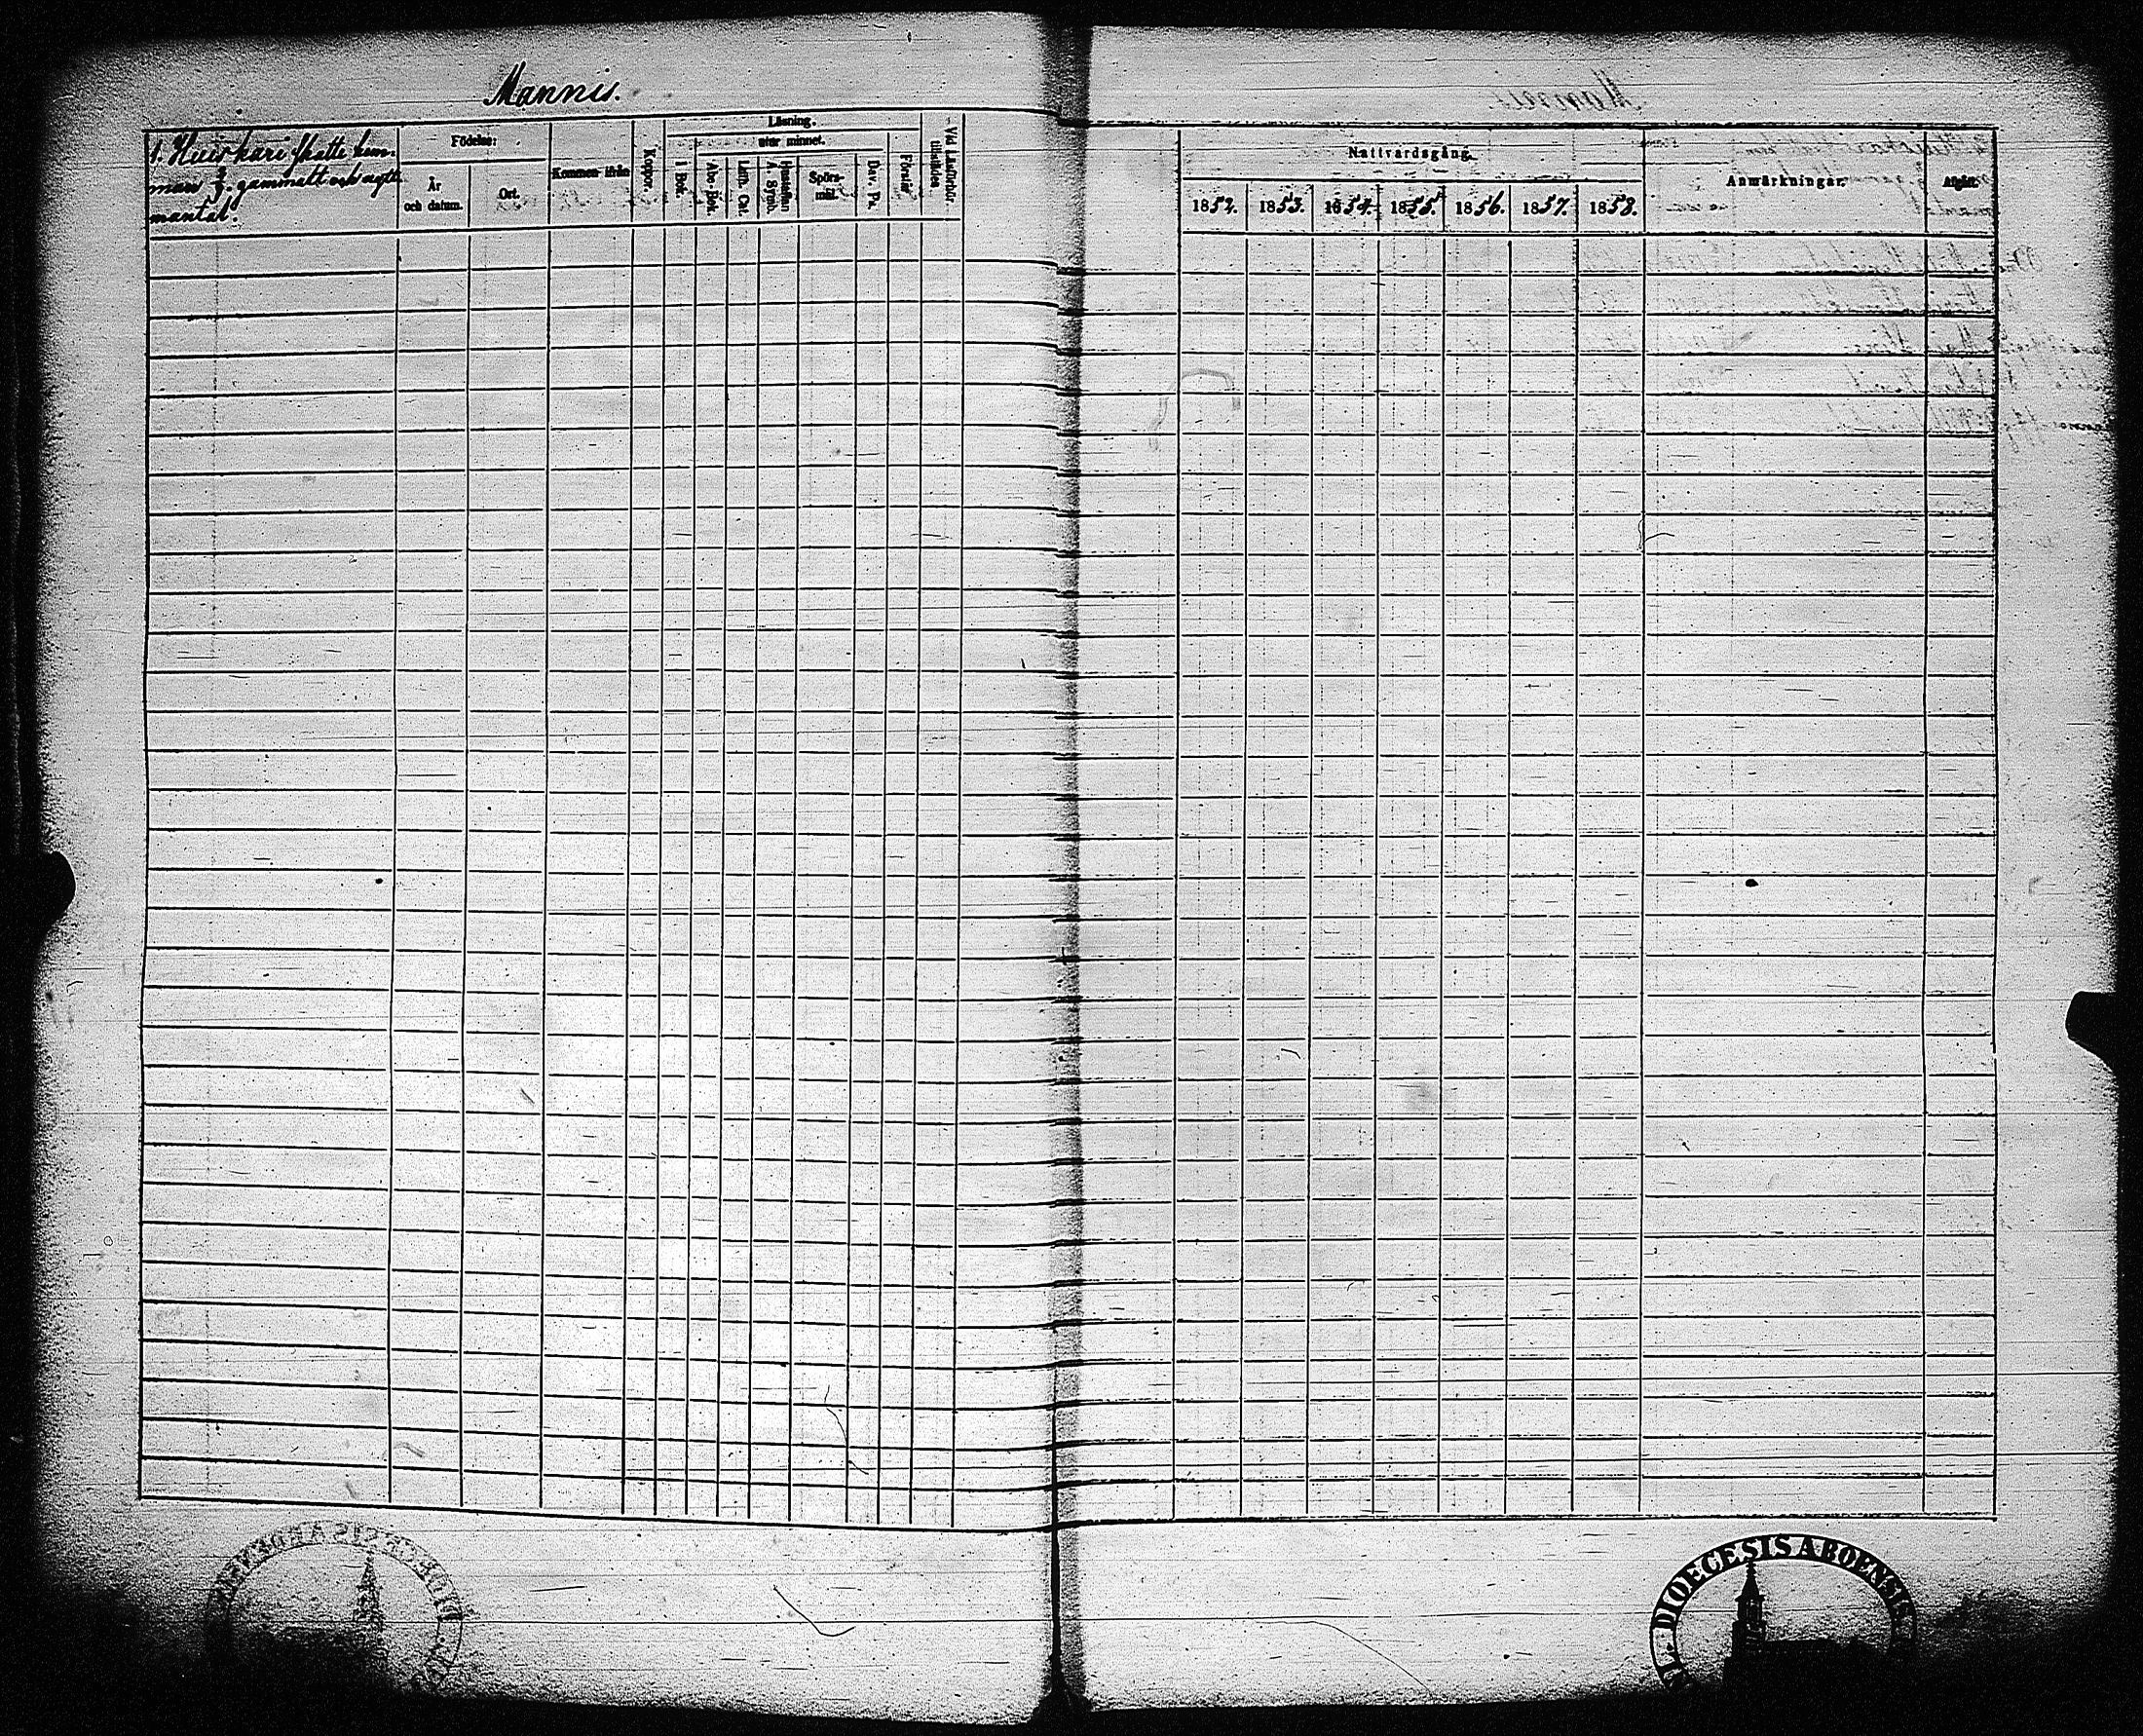 Mannis.
1. Huiskari Skatte hem-
man 2/3. gammalt och nytt
mantal.
Födelse:
År
och datum.
Ort.
Kommen ifrån
Koppor.
Läsning.
I Bok.
utur minnet.
Abc-Bok.
Luth. Cat.
Hustaflan
A. Symb.
Spörs-
mål.
Dav. Ps.
Förstår
Vid Läsförhör
tillstädes
Nattvardsgång.
1852.
1853.
1854.
1855.
1856.
1857.
1858.
Anmärkningar.
Afgått.
DIOECESIS ABOENSIS